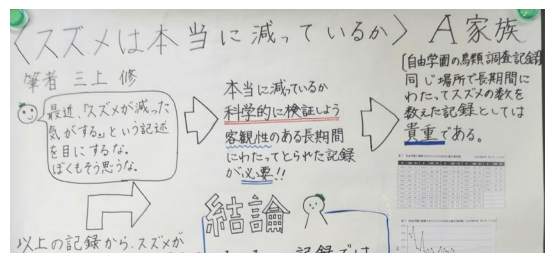 〈スズメは本当に減っているか〉 A家族
筆者 三上 修
最近、「スズメが減った
気がする。」という記述
を目にするな。
ぼくもそう思うな。
本当に減っているか
科学的に検証しよう
客観性のある長期間
にわたってとられた記録
が必要!!
[自由学園の鳥類調査記録]
同じ場所で長期間に
わたってスズメの数を
数えた記録としては
貴重である。
結論
以上の記録から、スズメが
記録では